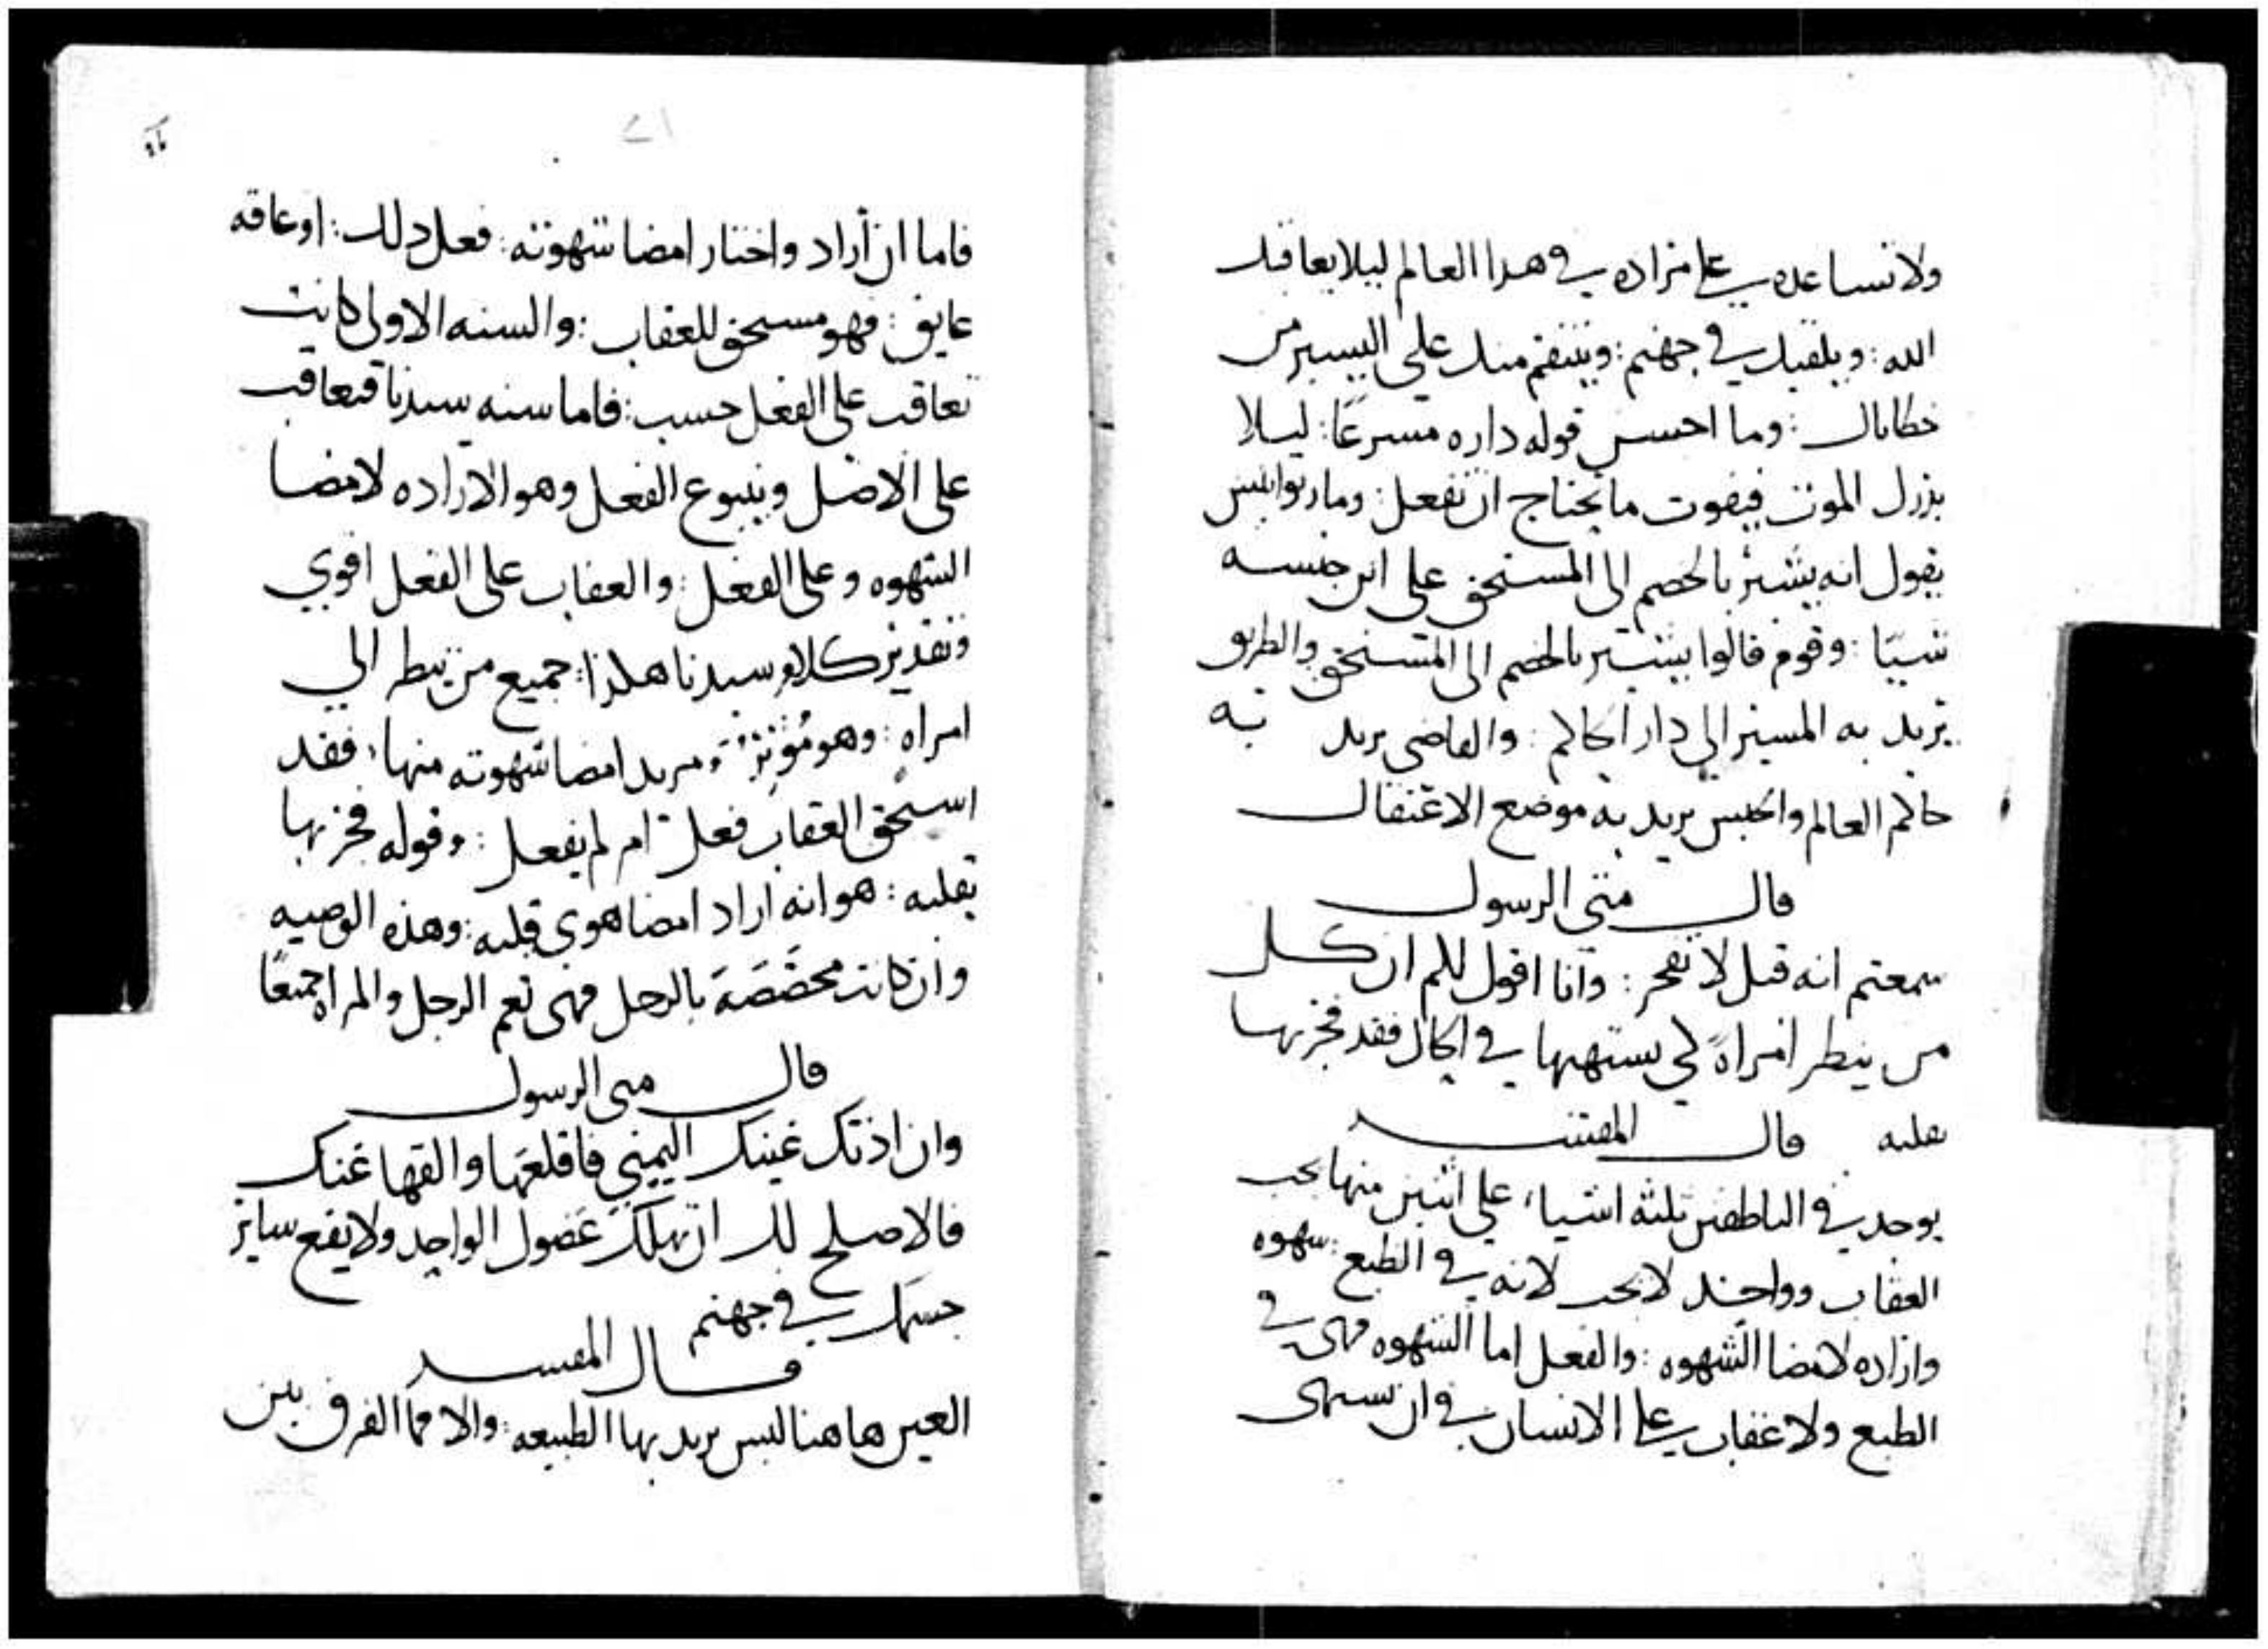 ولا تساعده على مراده في هدا العالم ليلا يعاقبك
الله : ويلقيك في جهنم : وينتقم منك على اليسير من
خطاياك : وما احسن قوله داره مسرعًا : ليلا
ينزل الموت فيفوت ما تحتاج ان تفعل : ومار يوانيس
يقول انه يشير بالخصم الى المستحق على ابن جنسه
شيًا : وقوم قالوا يشير بالخصم الى المستحق والطريق
يريد به المسير الى دار الحاكم : والقاضي يريد به
حاكم العالم والحبس يريد به موضع الاعتقال
قال متى الرسول
سمعتم انه قيل لا تفجر : وانا اقول لكم ان كل
من ينطر امراة كي يستهيها في الحال فقد فجر بها
بقلبه قال المفسر
يوجد في الناطقين تلثه اشياء على اثنين منها يجب
العقاب وواحد لا يجب لانه في الطبع : شهوه
واراده لامضا الشهوه : والفعل اما الشهوه فهى في
الطبع ولا عقاب على الانسان في ان يستهى
٢١
فاما ان أراد واختار امضا شهوته : فعل دلك : او عاقه
عايق : فهو مستحق للعقاب : والسنه الاولى كانت
تعاقب على الفعل حسب : فاما سنه سيدنا فتعاقب
على الاصل وينبوع الفعل وهو الاراده لامضا
الشهوه وعلى الفعل : والعقاب على الفعل اقوى
وتقدير كلام سيدنا هكذا : جميع من ينطر الي
امراه : وهو مُؤثِرٌ ومريد امضا شهوته منها : فقد
استحق العقاب فعل ام لم يفعل : وقوله فجر بها
بقلبه : هو انه اراد امضا هوى قلبه : وهذه الوصيه
وان كانت مخصَّصَة بالرجل فهى تعم الرجل والمراه جميعًا
قال متى الرسول
وان اذتك عينك اليمني فاقلعها والقها عنك
فالاصلح لك ان تهلك عضوك الواحد ولا يقع ساير
جسمك في جهنم
قال المفسر
العين هاهنا ليس يريد بها الطبيعه : والا فما الفرق بين